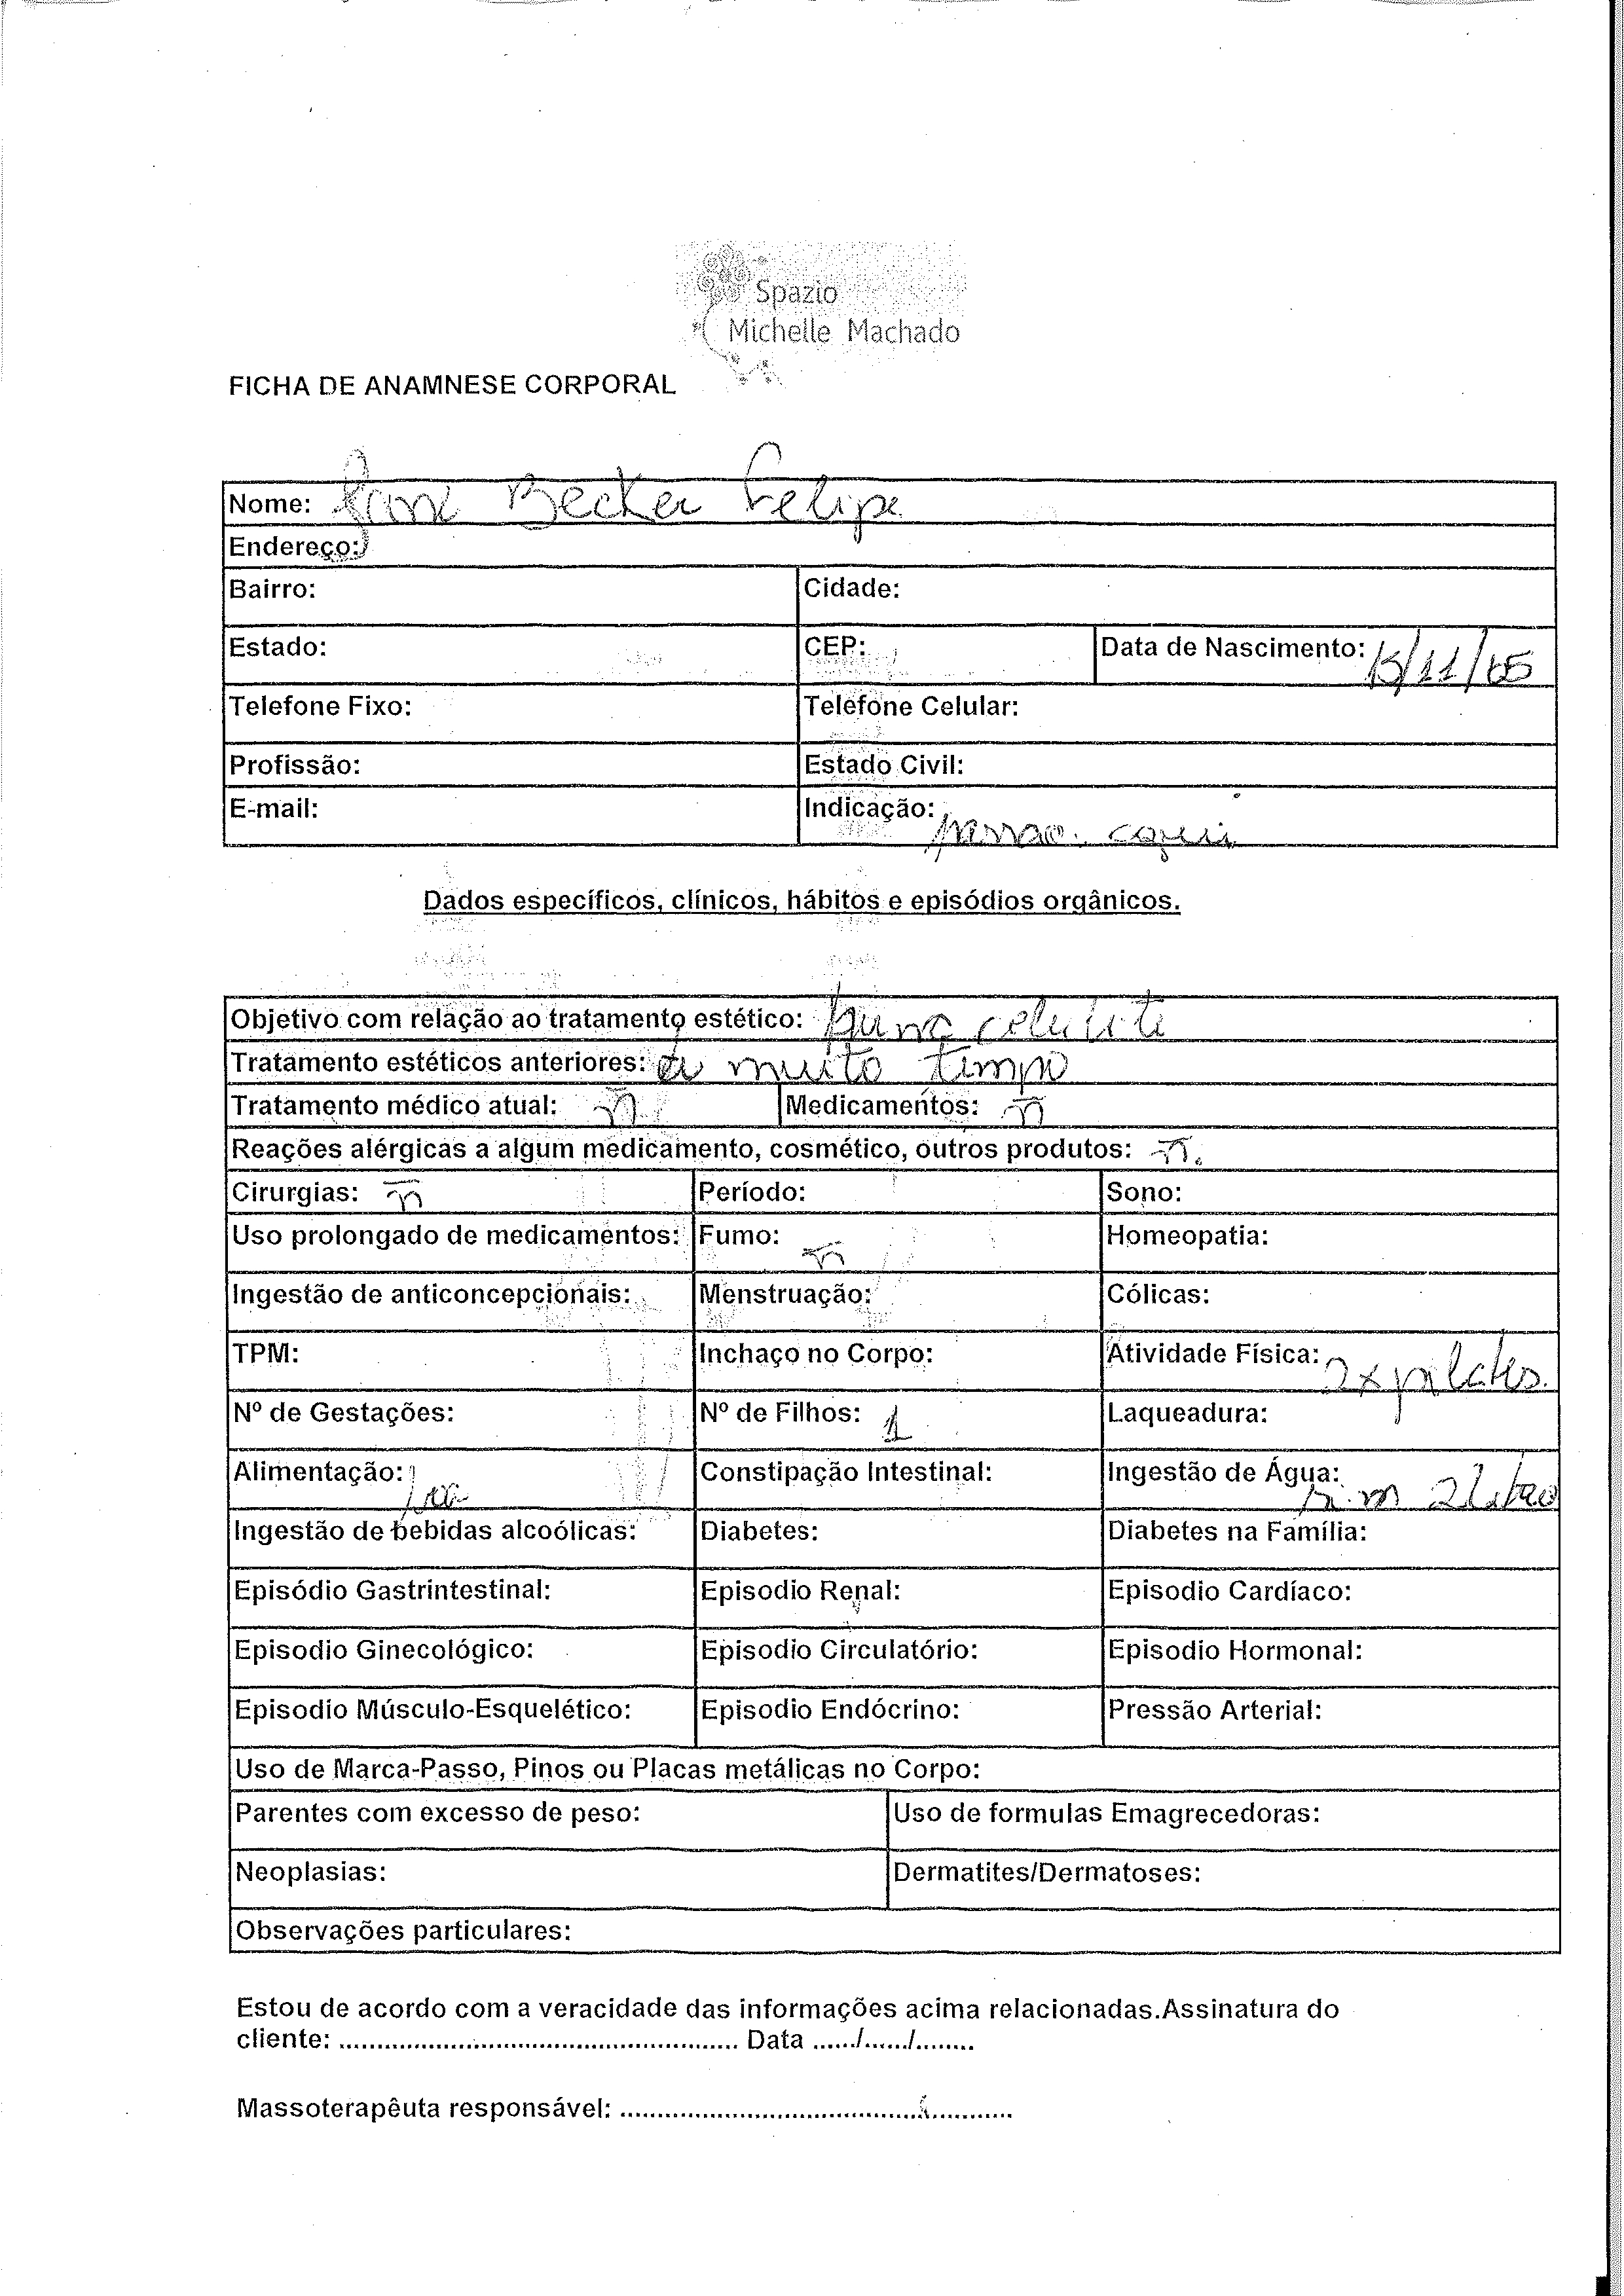 Spazio
Michelle Machado
FICHA DE ANAMNESE CORPORAL
Nome: Becker Felipe
Endereço:
Bairro: Cidade:
Estado: CEP: Data de Nascimento: 15/11/65
Telefone Fixo: Telefone Celular:
Profissão: Estado Civil:
E-mail: Indicação:
Dados específicos, clínicos, hábitos e episódios orgânicos.
Objetivo com relação ao tratamento estético: celulite
Tratamento estéticos anteriores: a muito tempo
Tratamento médico atual: ñ Medicamentos: ñ
Reações alérgicas a algum medicamento, cosmético, outros produtos: ñ.
Cirurgias: ñ Período: Sono:
Uso prolongado de medicamentos: Fumo: ñ Homeopatia:
Ingestão de anticoncepcionais: Menstruação: Cólicas:
TPM: Inchaço no Corpo: Atividade Física: 2x pilates.
Nº de Gestações: Nº de Filhos: 1 Laqueadura:
Alimentação: boa Constipação Intestinal: Ingestão de Água: sim 2 litros
Ingestão de bebidas alcoólicas: Diabetes: Diabetes na Família:
Episódio Gastrintestinal: Episodio Renal: Episodio Cardíaco:
Episodio Ginecológico: Episodio Circulatório: Episodio Hormonal:
Episodio Músculo-Esquelético: Episodio Endócrino: Pressão Arterial:
Uso de Marca-Passo, Pinos ou Placas metálicas no Corpo:
Parentes com excesso de peso: Uso de formulas Emagrecedoras:
Neoplasias: Dermatites/Dermatoses:
Observações particulares:
Estou de acordo com a veracidade das informações acima relacionadas.Assinatura do
cliente: ..................................................... Data ....../....../........
Massoterapêuta responsável: .....................................................